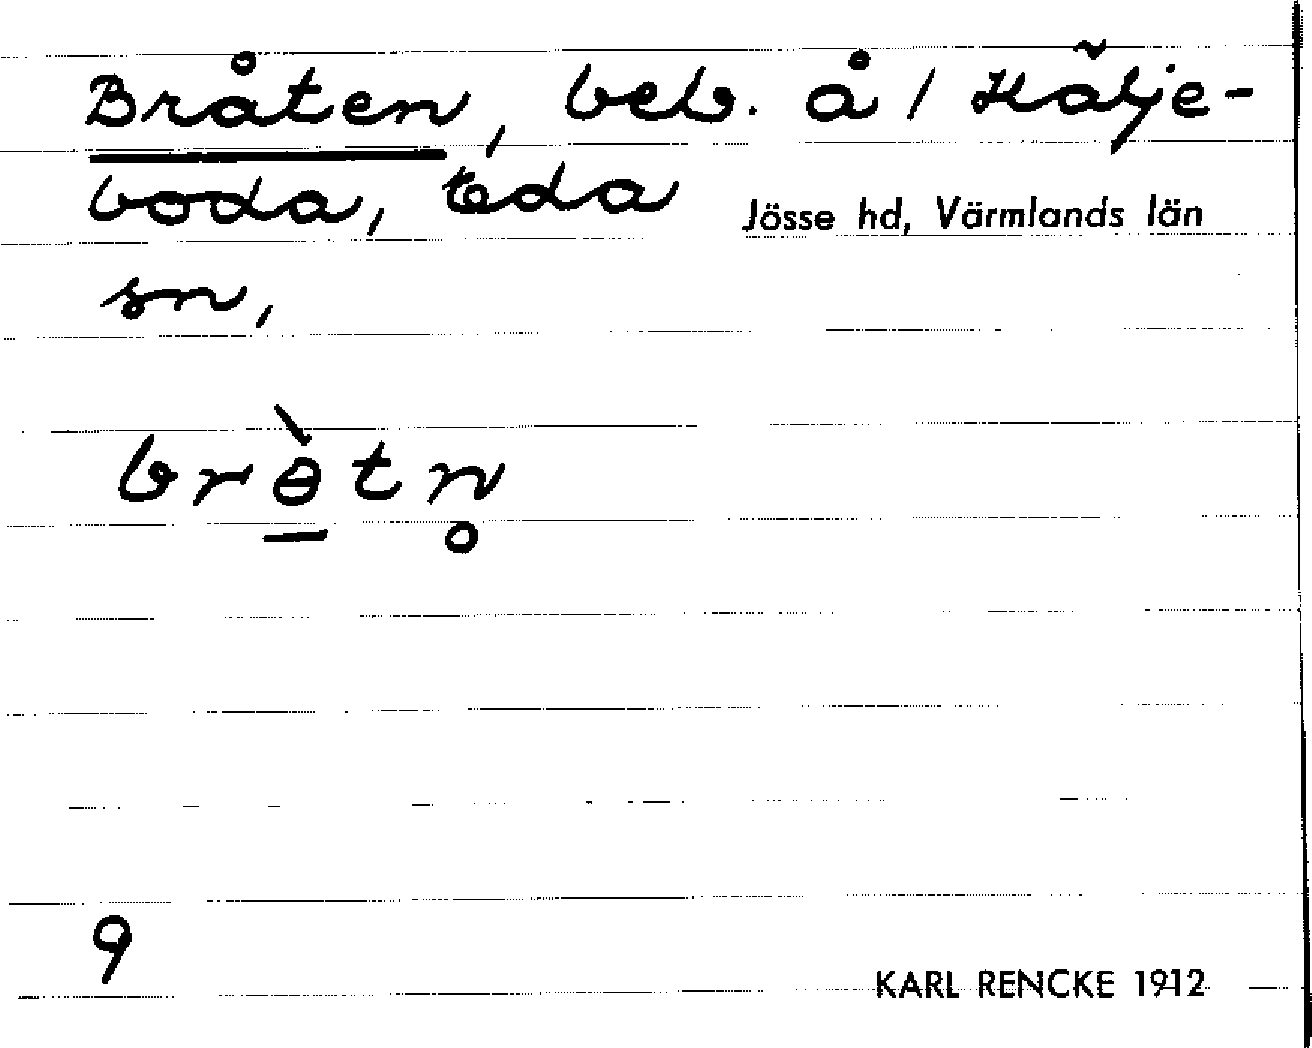 Bråten, beb. å / Hälje-
boda, Eda Jösse hd, Värmlands län
sn,
brɵ̠̀tn̥
9
KARL RENCKE 1912